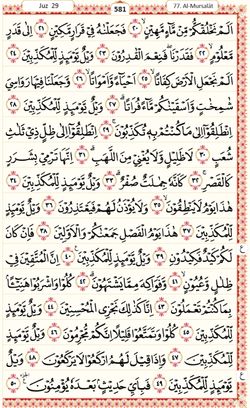 Juz 29
581
77. Al-Mursalāt
اَلَمْ نَخْلُقْكُّمْ مِّنْ مَّآءٍ مَّهِيْنٍ ۲۰ فَجَعَلْنٰهُ فِيْ قَرَارٍ مَّكِيْنٍ ۲۱ اِلٰى قَدَرٍ
مَّعْلُوْمٍ ۲۲ فَقَدَرْنَا فَنِعْمَ الْقٰدِرُوْنَ ۲۳ وَيْلٌ يَّوْمَئِذٍ لِّلْمُكَذِّبِيْنَ ۲۴
اَلَمْ نَجْعَلِ الْاَرْضَ كِفَاتًا ۲۵ اَحْيَآءً وَّاَمْوَاتًا ۲۶ وَّجَعَلْنَا فِيْهَا رَوَاسِيَ
شٰمِخٰتٍ وَّاَسْقَيْنٰكُمْ مَّآءً فُرَاتًا ۲۷ وَيْلٌ يَّوْمَئِذٍ لِّلْمُكَذِّبِيْنَ ۲۸
اِنْطَلِقُوْٓا اِلٰى مَا كُنْتُمْ بِهٖ تُكَذِّبُوْنَ ۲۹ اِنْطَلِقُوْٓا اِلٰى ظِلٍّ ذِيْ ثَلٰثِ
شُعَبٍ ۳۰ لَّا ظَلِيْلٍ وَّلَا يُغْنِيْ مِنَ اللَّهَبِ ۳۱ اِنَّهَا تَرْمِيْ بِشَرَرٍ
كَالْقَصْرِ ۳۲ كَاَنَّهٗ جِمٰلَتٌ صُفْرٌ ۳۳ وَيْلٌ يَّوْمَئِذٍ لِّلْمُكَذِّبِيْنَ ۳۴
هٰذَا يَوْمُ لَا يَنْطِقُوْنَ ۳۵ وَلَا يُؤْذَنُ لَهُمْ فَيَعْتَذِرُوْنَ ۳۶ وَيْلٌ يَّوْمَئِذٍ
لِّلْمُكَذِّبِيْنَ ۳۷ هٰذَا يَوْمُ الْفَصْلِ جَمَعْنٰكُمْ وَالْاَوَّلِيْنَ ۳۸ فَاِنْ كَانَ
لَكُمْ كَيْدٌ فَكِيْدُوْنِ ۳۹ وَيْلٌ يَّوْمَئِذٍ لِّلْمُكَذِّبِيْنَ ۴۰ اِنَّ الْمُتَّقِيْنَ فِيْ
ظِلٰلٍ وَّعُيُوْنٍ ۴۱ وَّفَوَاكِهَ مِمَّا يَشْتَهُوْنَ ۴۲ كُلُوْا وَاشْرَبُوْا هَنِيْٓـًٔا
بِمَا كُنْتُمْ تَعْمَلُوْنَ ۴۳ اِنَّا كَذٰلِكَ نَجْزِي الْمُحْسِنِيْنَ ۴۴ وَيْلٌ يَّوْمَئِذٍ
لِّلْمُكَذِّبِيْنَ ۴۵ كُلُوْا وَتَمَتَّعُوْا قَلِيْلًا اِنَّكُمْ مُّجْرِمُوْنَ ۴۶ وَيْلٌ يَّوْمَئِذٍ
لِّلْمُكَذِّبِيْنَ ۴۷ وَاِذَا قِيْلَ لَهُمُ ارْكَعُوْا لَا يَرْكَعُوْنَ ۴۸ وَيْلٌ
يَّوْمَئِذٍ لِّلْمُكَذِّبِيْنَ ۴۹ فَبِاَيِّ حَدِيْثٍۭ بَعْدَهٗ يُؤْمِنُوْنَ ۵۰